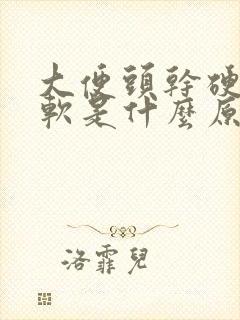 大便頭幹硬
軟是什麼原
洛霏兒